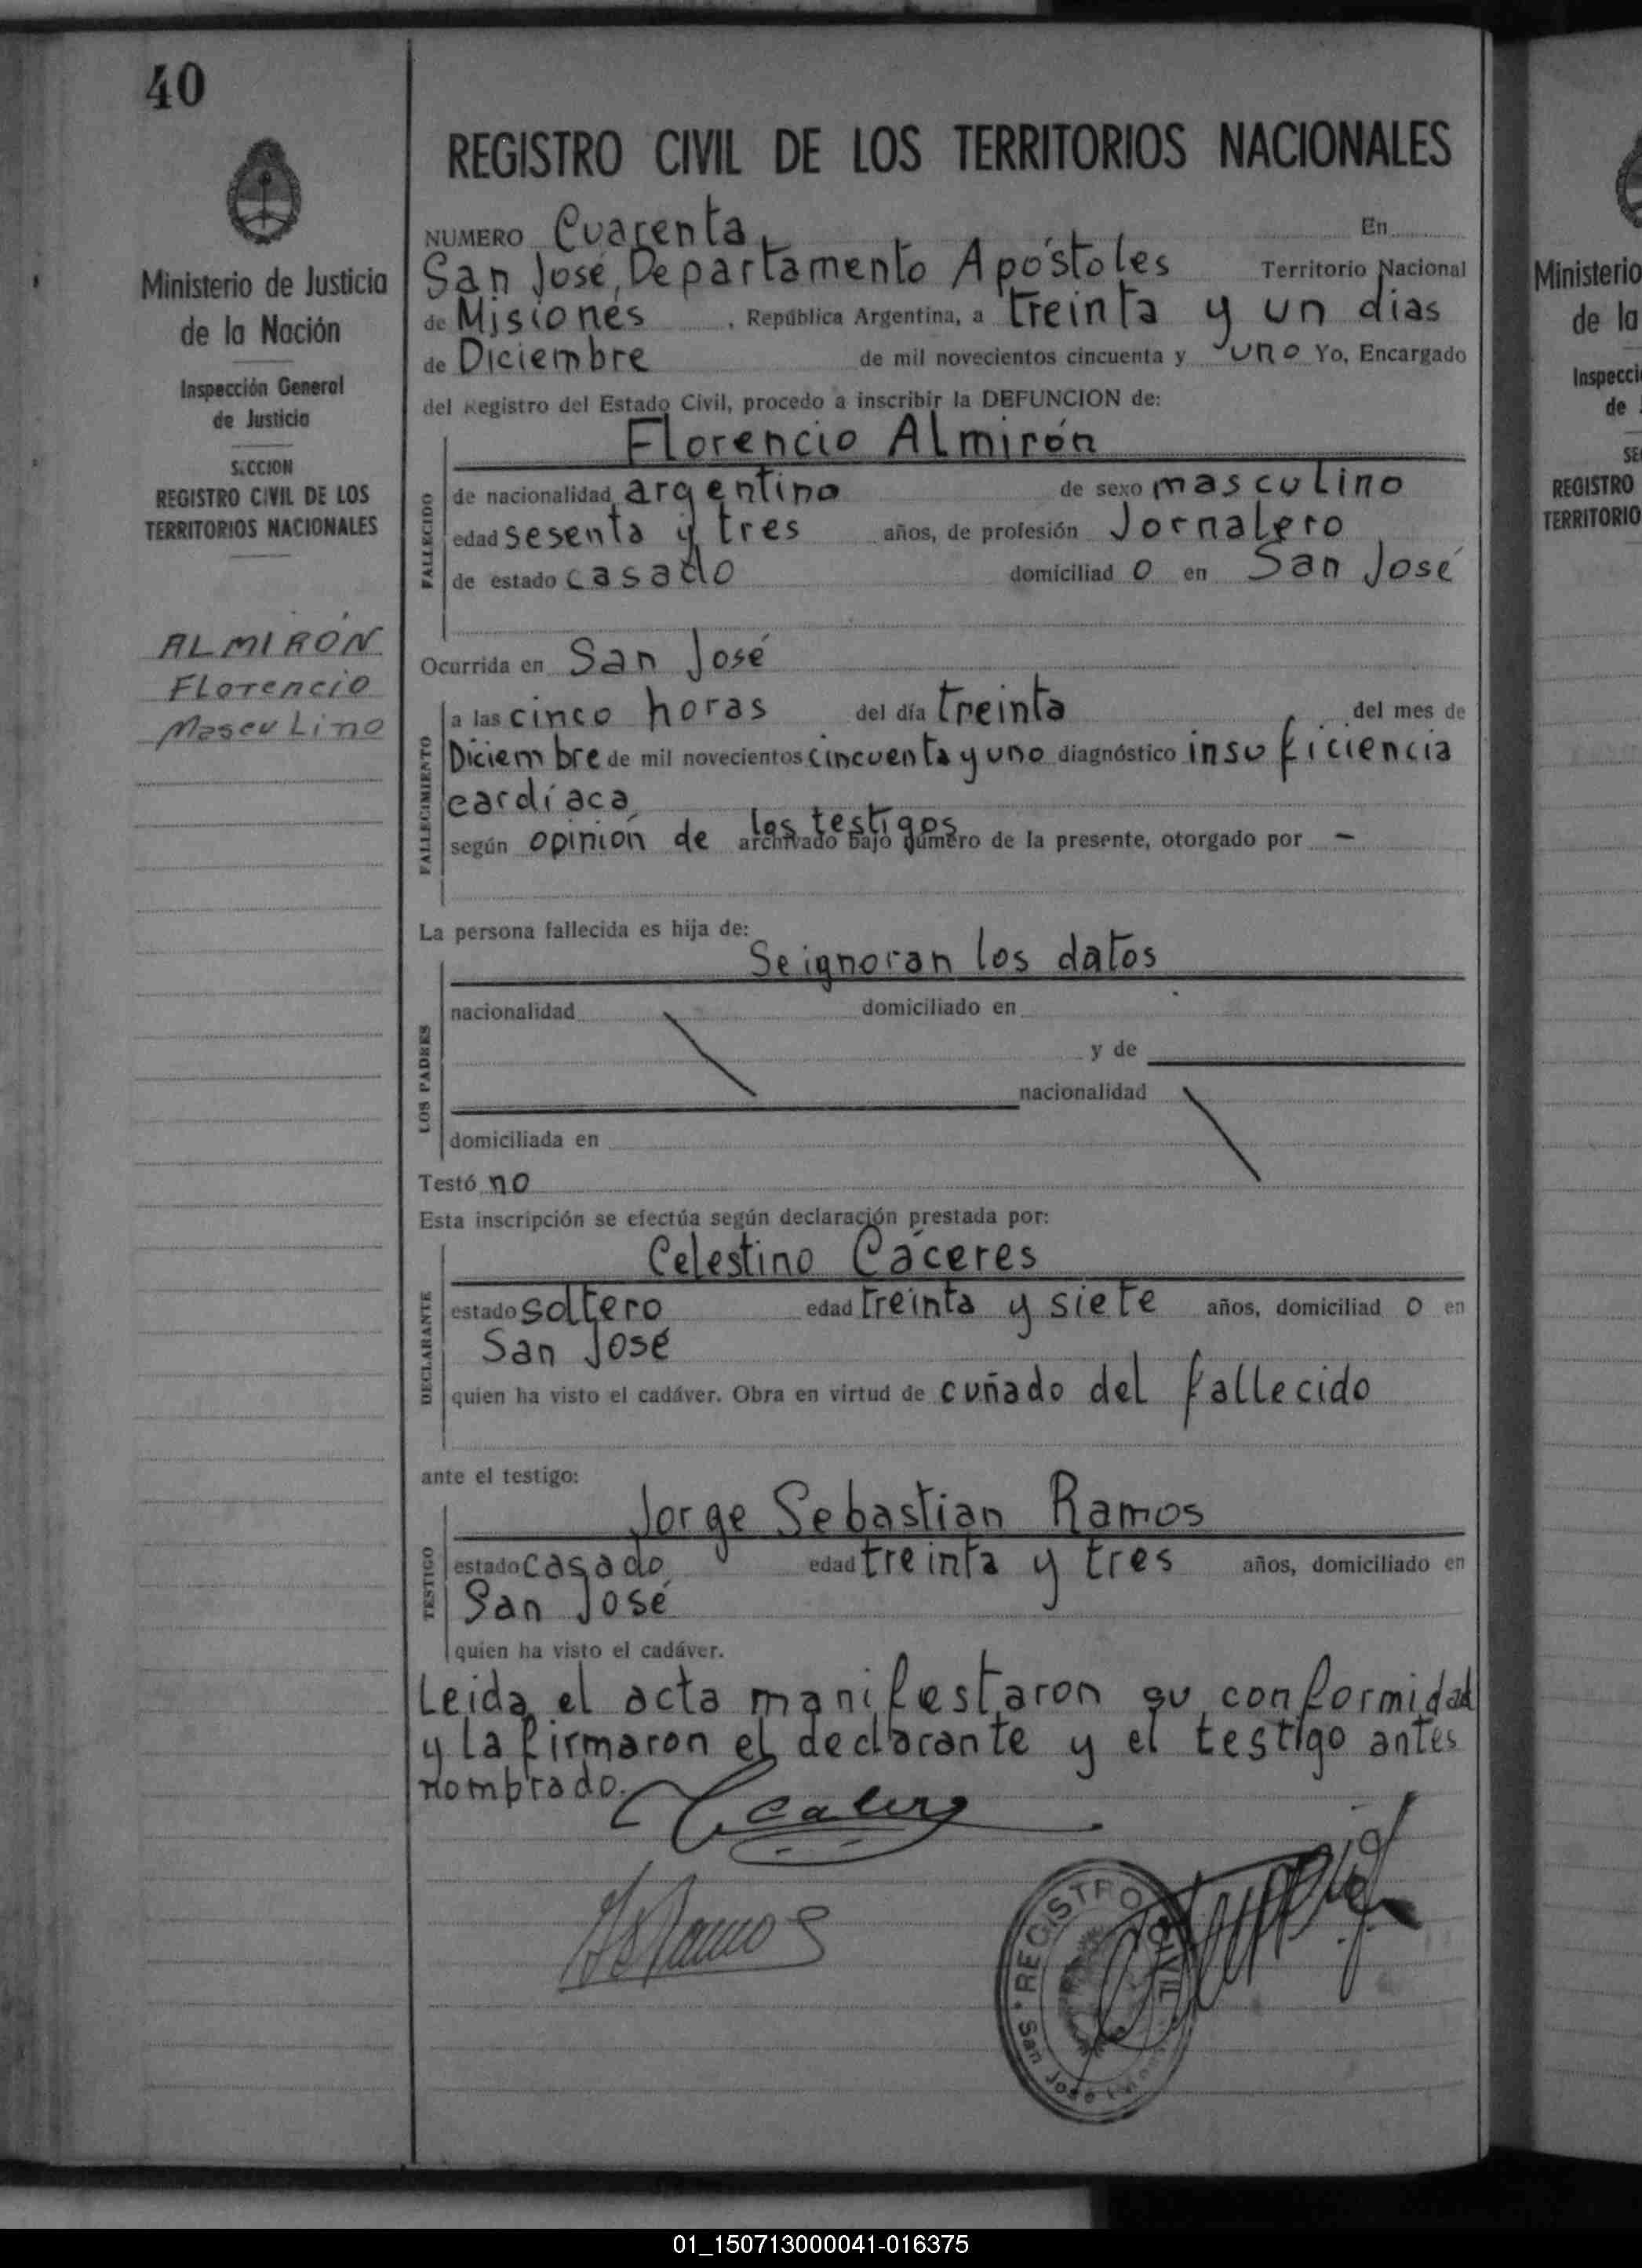 40
Ministerio de Justicia
de la Nación
Inspección General
de Justicia
SECCION
REGISTRO CIVIL DE LOS
TERRITORIOS NACIONALES
ALMIRÓN
Florencio
Masculino
REGISTRO CIVIL DE LOS TERRITORIOS NACIONALES
NUMERO Cuarenta En
San José, Departamento Apóstoles Territorio Nacional
de Misiones, República Argentina, a treinta y un días
de Diciembre de mil novecientos cincuenta y uno Yo, Encargado
del Registro del Estado Civil, procedo a inscribir la DEFUNCION de:
Florencio Almirón
FALLECIDO
de nacionalidad argentino de sexo masculino
edad sesenta y tres años, de profesión Jornalero
de estado casado domiciliad o en San José
Ocurrida en San José
FALLECIMIENTO
a las cinco horas del día treinta del mes de
Diciembre de mil novecientos cincuenta y uno diagnóstico insuficiencia
cardíaca
según opinión de los testigos archivado bajo número de la presente, otorgado por -
La persona fallecida es hija de:
Se ignoran los datos
LOS PADRES
nacionalidad domiciliado en
y de
nacionalidad
domiciliada en
Testó no
Esta inscripción se efectúa según declaración prestada por:
Celestino Cáceres
DECLARANTE
estado soltero edad treinta y siete años, domiciliad o en
San José
quien ha visto el cadáver. Obra en virtud de cuñado del fallecido
ante el testigo:
Jorge Sebastian Ramos
TESTIGO
estado casado edad treinta y tres años, domiciliado en
San José
quien ha visto el cadáver.
Leida el acta manifestaron su conformidad
y la firmaron el declarante y el testigo antes
nombrado.
JSRamos
REGISTRO CIVIL
San José
Ministerio
de la
Inspecci
de
SE
REGISTRO
TERRITORIO
01_150713000041-016375